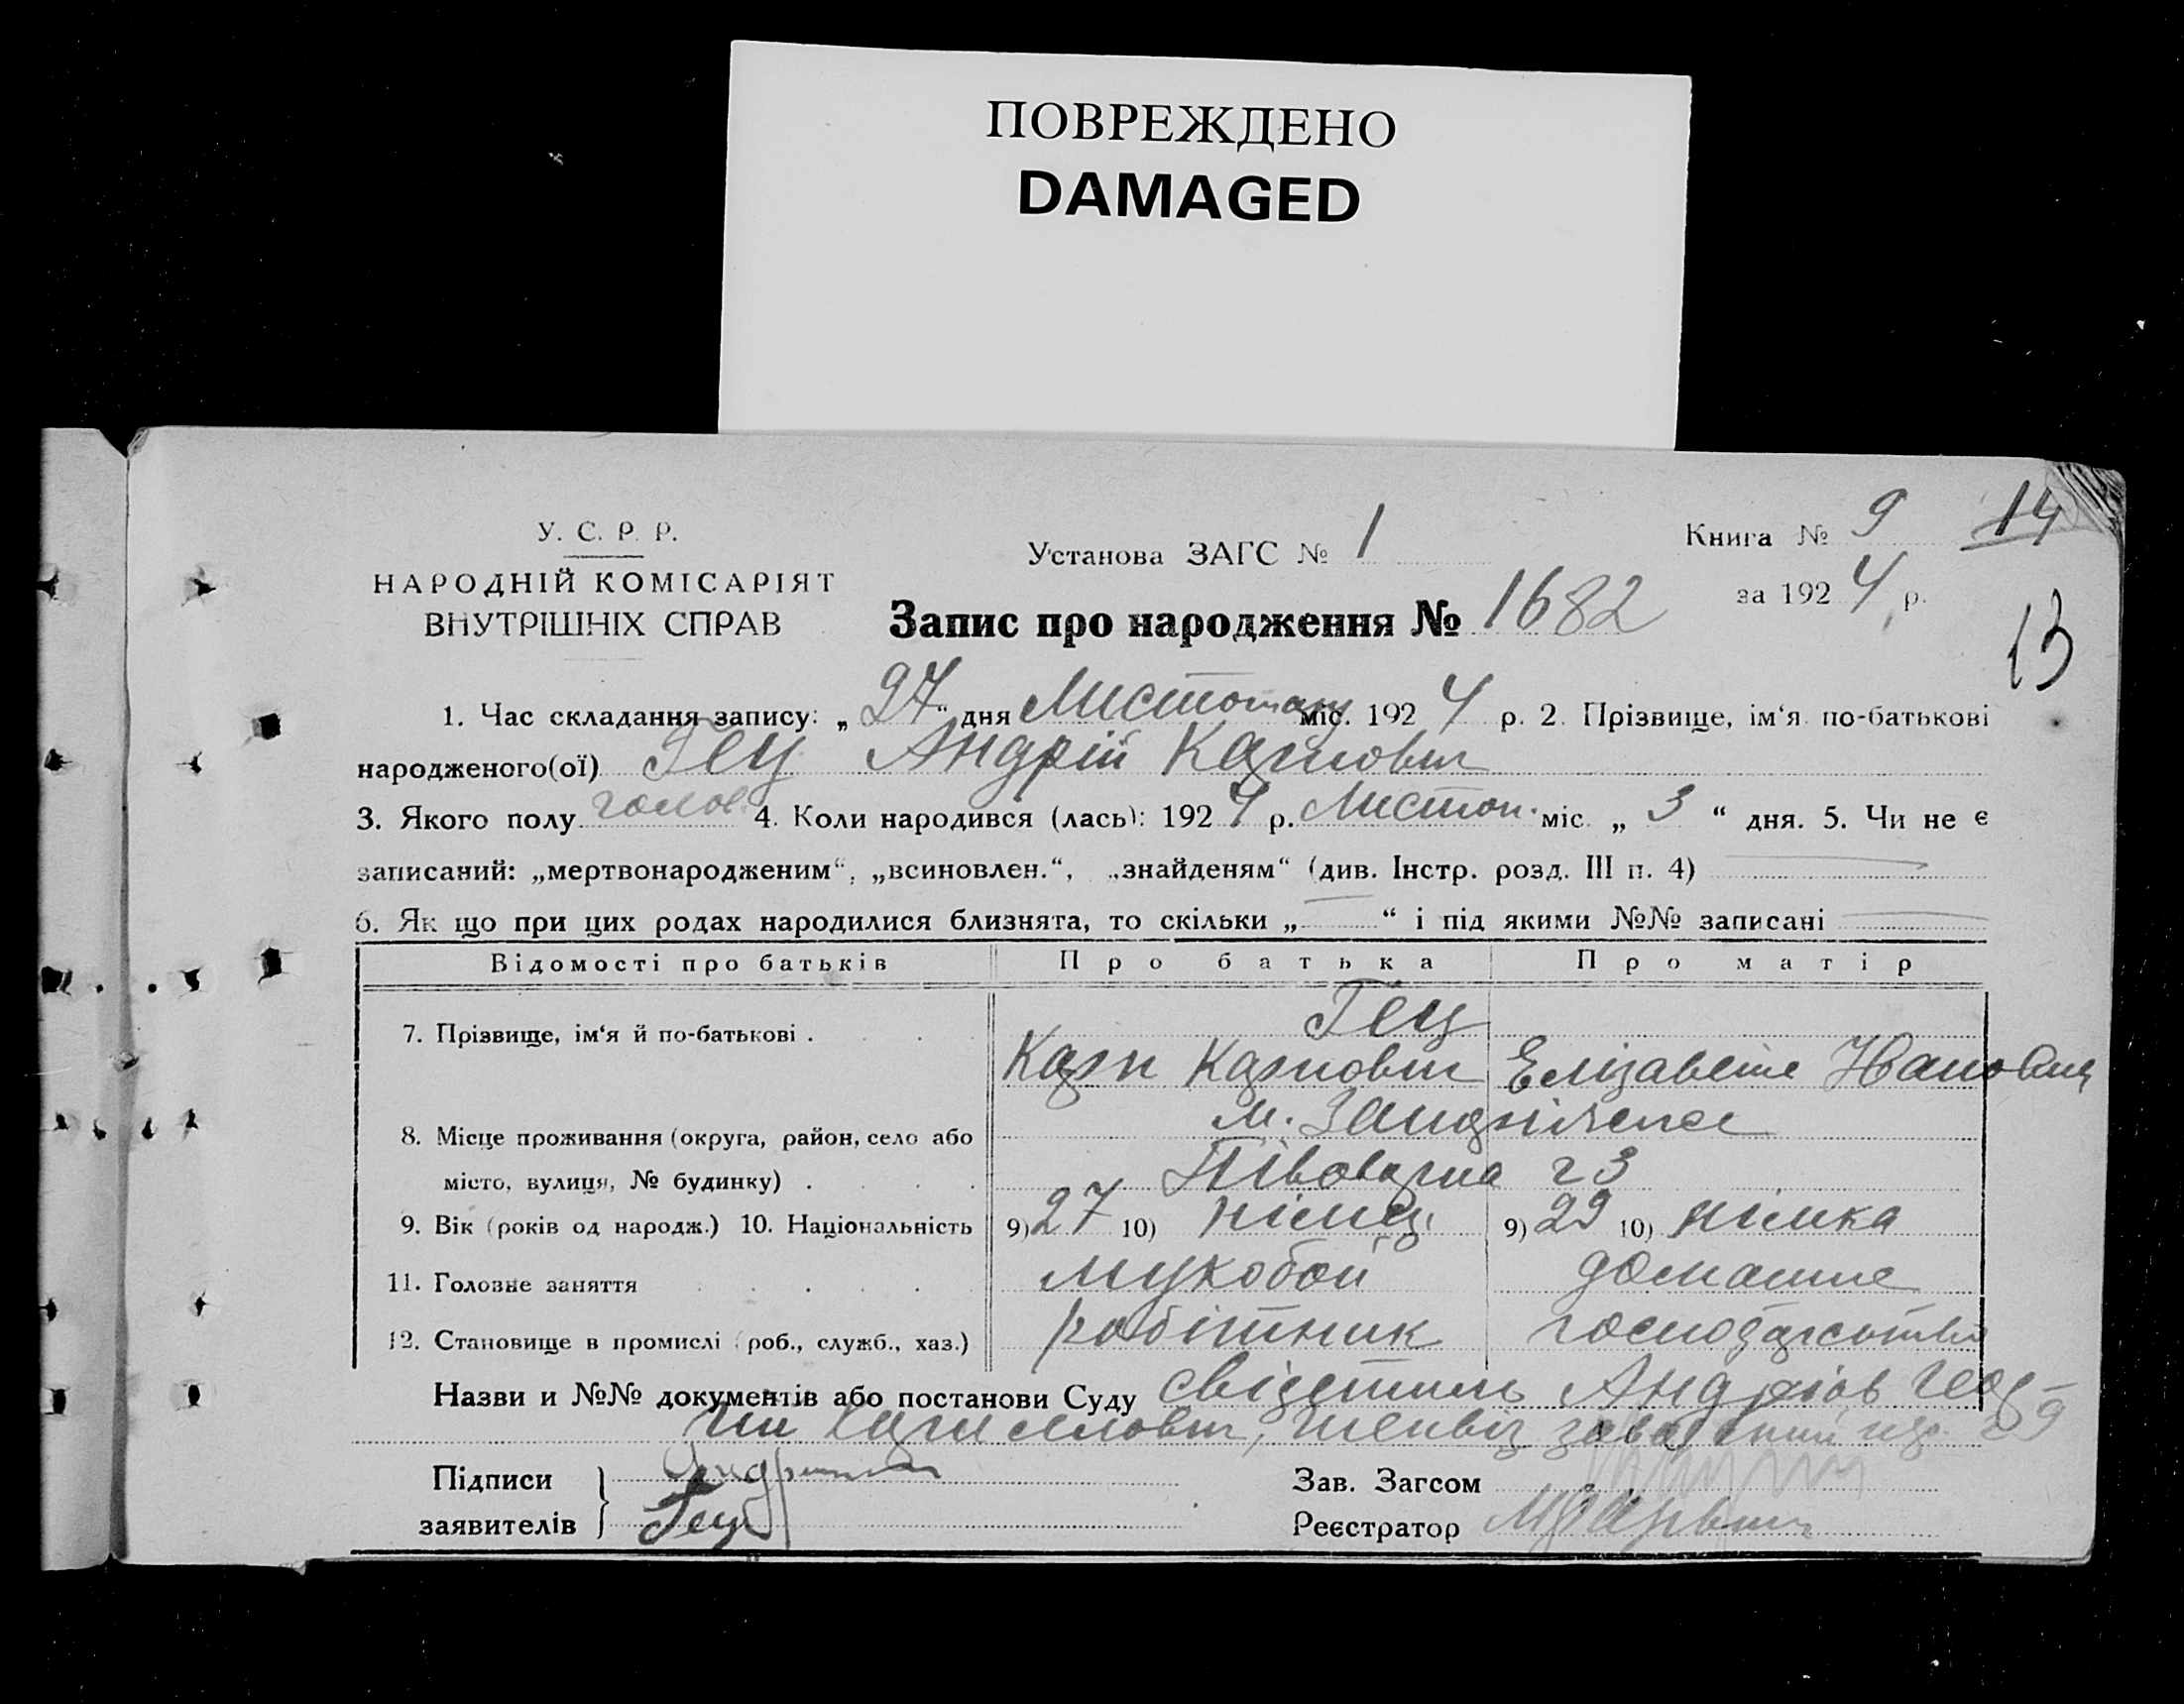 ПОВРЕЖДЕНО
DAMAGED
У. С. Р. Р.
НАРОДНІЙ КОМІСАРІЯТ
ВНУТРІШНІХ СПРАВ
Установа ЗАГС № 1
Книга № 9 14
за 1924 р.
Запис про народження № 1682
13
1. Час складання запису: „27“ дня Листопаду міс. 1924 р. 2. Прізвище, ім‘я по-батькові
народженого(ої) Гец Андрій Карлович
3. Якого полу чолов. 4. Коли народився (лась): 1924 р. Листоп. міс. „ 3 “ дня. 5. Чи не є
записаний: „мертвонародженим“, „всиновлен.“, „знайденям“ (див. Інстр. розд. III п. 4)
6. Як що при цих родах народилися близнята, то скільки „ “ і під якими №№ записані
Відомості про батьків Про батька Про матір
Гец
7. Прізвище, ім‘я й по-батькові . Карл Карлович Елізавета Ивановна
8. Місце проживання (округа, район, село або м.
місто, вулиця, № будинку) . 23
9. Вік (років од народж.) 10. Національність 9) 27 10) німець 9) 29 10) німка
11. Головне заняття мукобой домашнє
12. Становище в промислі (роб., служб., хаз.) робітник господарство
Назви и №№ документів або постанови Суду
Підписи
заявителів Гец
Зав. Загсом
Реєстратор